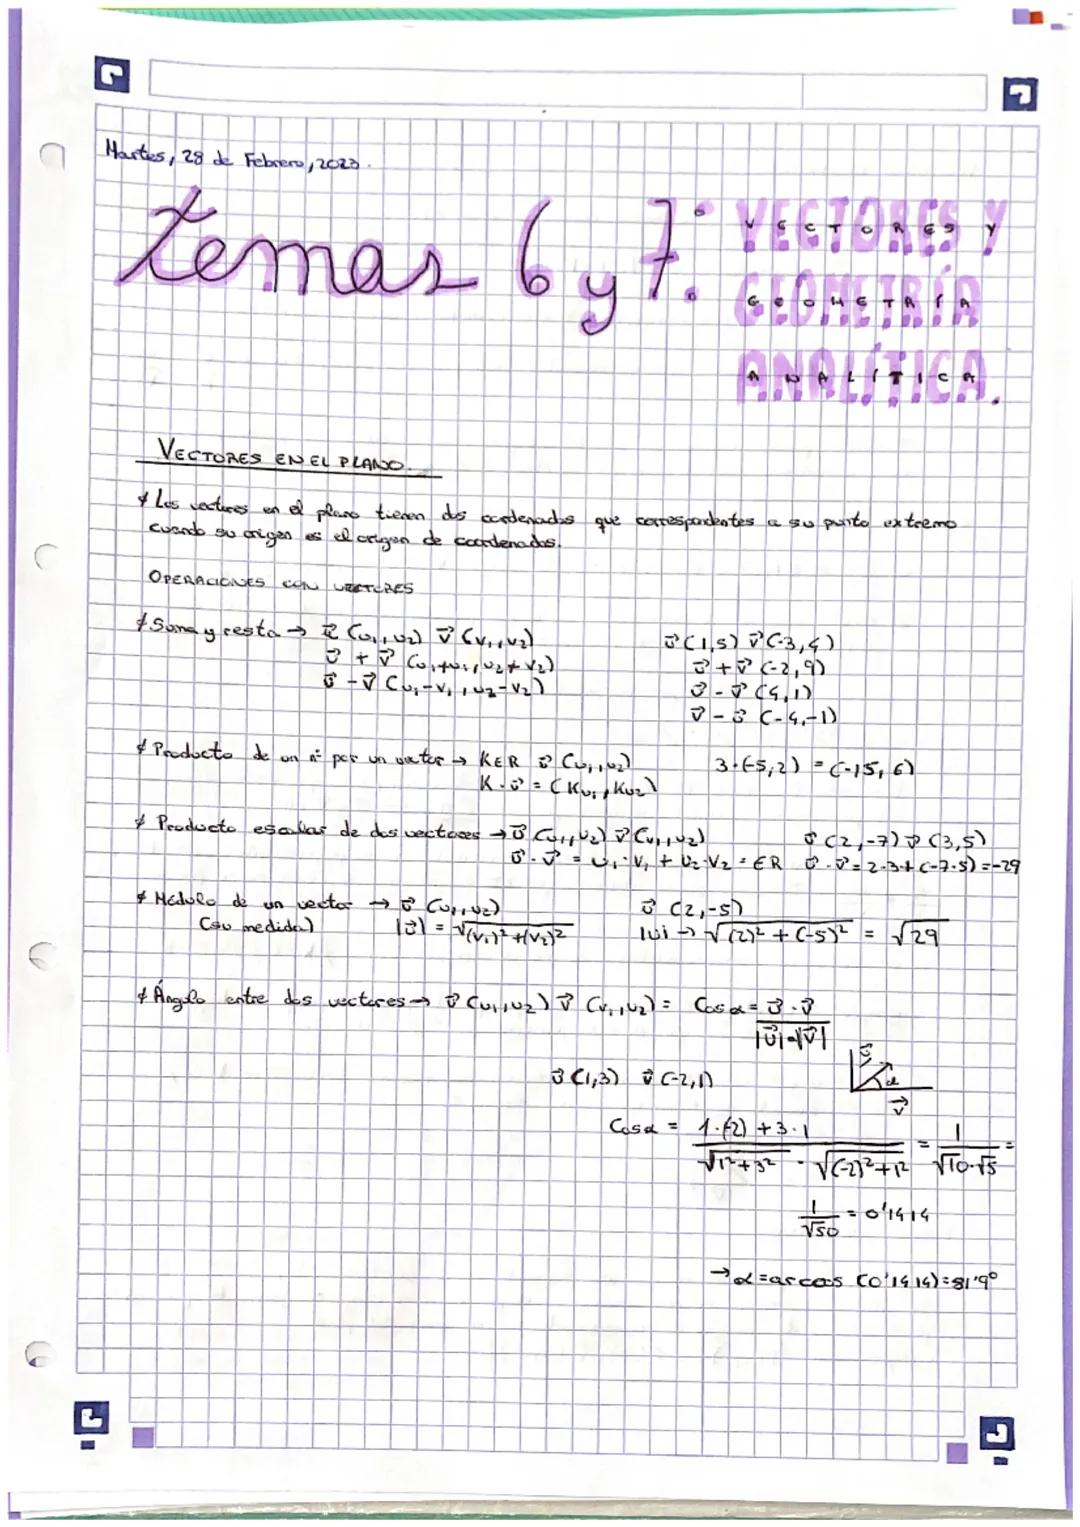 Martes, 28 de Febrero, 2023.
temas 6 y 7: VECTORES Y
GEOMETRÍA
ANALÍTICA.
VECTORES EN EL PLANO.
Los vectores en el plano tienen dos coordenadas que correspondentes a su punto extremo
cuando su origen es el origen de coordenadas.
OPERACIONES CON VECTORES
Suma y resta → u⃗ (u₁,u₂) v⃗ (v₁,v₂) u⃗(1,5) v⃗(-3,4)
u⃗ + v⃗ (u₁+v₁,u₂+v₂) u⃗+v⃗ (-2,9)
u⃗ - v⃗ (u₁-v₁,u₂-v₂) u⃗-v⃗ (4,1)
v⃗-u⃗ (-4,-1)
Producto de un nº por un vector → K∈R u⃗ (u₁,u₂) 3·(-5,2) = (-15,6)
K·u⃗ = (Ku₁,Ku₂)
Producto escalar de dos vectores → u⃗ (u₁,u₂) v⃗ (v₁,v₂) u⃗ (2,-7) v⃗ (3,5)
u⃗·v⃗ = u₁·v₁ + u₂·v₂ = ∈R u⃗·v⃗ = 2·3+(-7·5) = -29
Módulo de un vector → u⃗ (u₁,u₂) u⃗ (2,-5)
(su medida) |u⃗| = √(v₁)²+(v₂)² |u| → √(2)²+(-5)² = √29
Ángulo entre dos vectores → u⃗ (u₁,u₂) v⃗ (v₁,v₂) = Cos α = u⃗·v⃗
|u⃗|·|v⃗|
u⃗ α
v⃗
u⃗ (1,3) v⃗ (-2,1)
Cos α = 1·(-2)+3·1 / √1²+3² · √(-2)²+1² = 1 / √10·√5 =
1/√50 = 0'1414
→ α = arccos (0'1414) = 81'9º